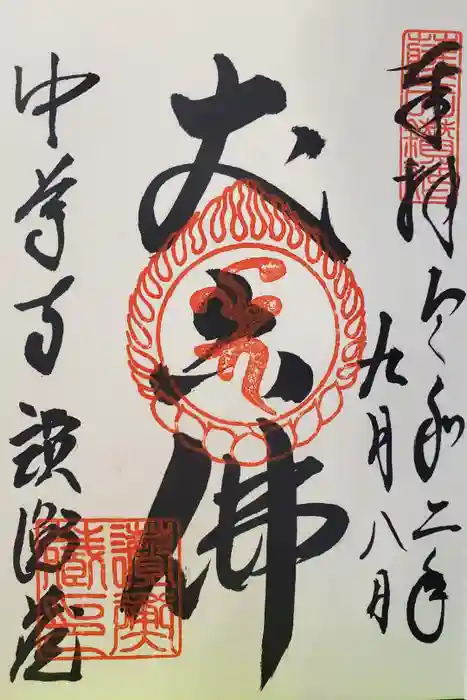 奉拝
令和二年
九月八日
丈六佛
中尊寺 讃衡蔵
讃衡蔵印